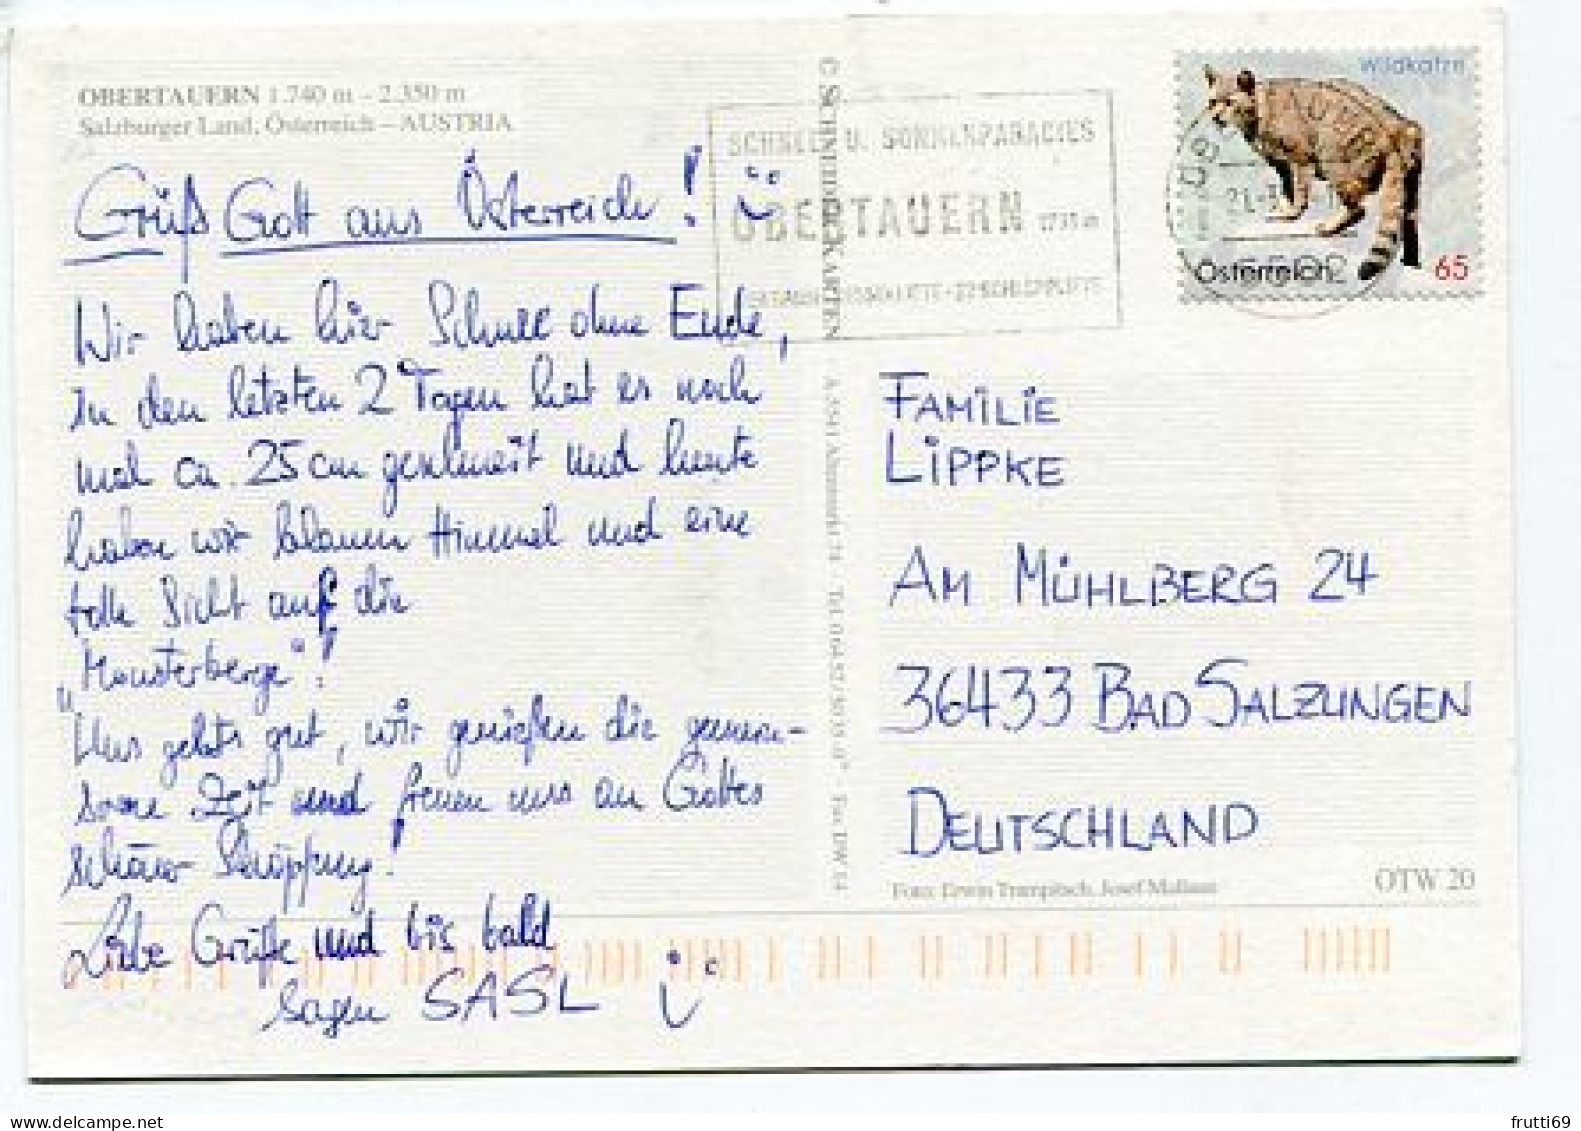 OBERTAUERN 1.740 m - 2.350 m
Salzburger Land, Österreich – AUSTRIA
Grüß Gott aus Österreich!
Wir haben hier Schnee ohne Ende,
in den letzten 2 Tagen hat es noch
mal ca. 25cm geschneit und heute
haben wir blauen Himmel und eine
tolle Sicht auf die
„Monsterberge"!
Uns gehts gut, wir genießen die gemein-
same Zeit und freuen uns an Gottes
schöner Schöpfung!
Liebe Grüße und bis bald
sagen SASL
© SCHNEIDER KARTEN
SCHNEE- U. SONNENPARADIES
OBERTAUERN
Wildkatze
Österreich
65
FAMILIE
LIPPKE
AM MÜHLBERG 24
36433 BAD SALZUNGEN
DEUTSCHLAND
Foto: Erwin Trampitsch, Josef Mallaun
OTW 20
frutti69